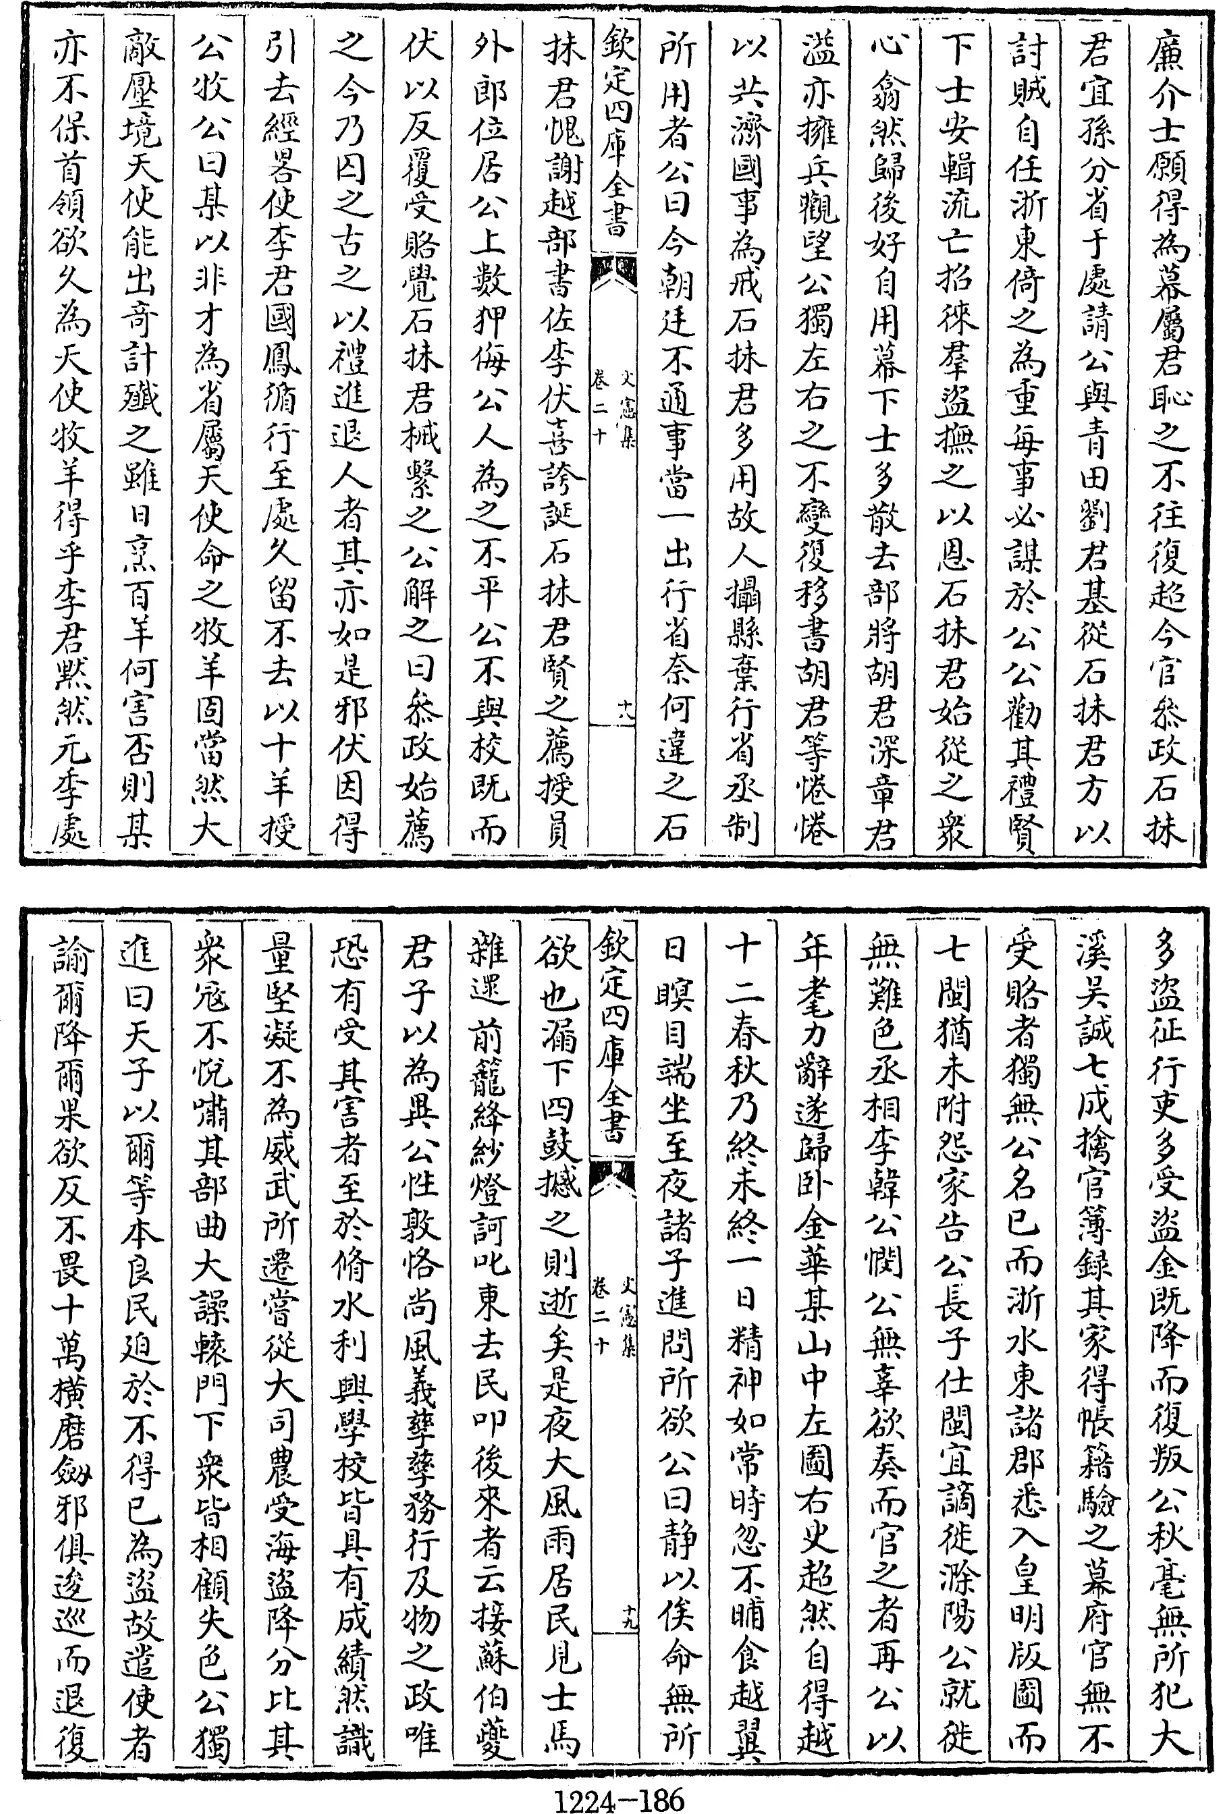 廉介士願得為幕屬君恥之不往復起今官叅政石抹
君宜孫分省于處請公與青田劉君基從石抹君方以
討賊自任浙東倚之為重每事必謀於公公勸其禮賢
下士安輯流亡招徠羣盜撫之以恩石抹君始從之衆
心翕然歸後好自用幕下士多散去部將胡君深章君
溢亦擁兵觀望公獨左右之不變復移書胡君等惓惓
以共濟國事為戒石抹君多用故人攝縣葉行省丞制
所用者公曰今朝廷不通事當一出行省奈何違之石
欽定四庫全書
文憲集
卷二十
十八
抹君愧謝越部書佐李伏喜誇誕石抹君賢之薦授員
外郎位居公上數狎侮公人為之不平公不與校既而
伏以反覆受賂覺石抹君械繫之公解之曰叅政始薦
之今乃囚之古之以禮進退人者其亦如是邪伏因得
引去經畧使李君國鳳循行至處久留不去以十羊授
公牧公曰某以非才為省屬天使命之牧羊固當然大
敵壓境天使能出奇計殲之雖日烹百羊何害否則某
亦不保首領欲久為天使牧羊得乎李君黙然元季處
多盜征行吏多受盜金既降而復叛公秋毫無所犯大
溪吳誠七成擒官簿録其家得帳籍驗之幕府官無不
受賂者獨無公名已而浙水東諸郡悉入皇明版圖而
七閩猶未附怨家告公長子仕閩宜謫徙滁陽公就徙
無難色丞相李韓公憫公無辜欲奏而官之者再公以
年耄力辭遂歸卧金華某山中左圖右史超然自得越
十二春秋乃終未終一日精神如常時忽不晡食越翼
日瞑目端坐至夜諸子進問所欲公曰静以俟命無所
欽定四庫全書
文憲集
卷二十
十九
欲也漏下四鼓撼之則逝矣是夜大風雨居民見士馬
雜遝前籠絳紗燈訶叱東去民叩後來者云接蘇伯夔
君子以為異公性敦恪尚風義孳孳務行及物之政唯
恐有受其害者至於脩水利興學校皆具有成績然識
量堅凝不為威武所遷嘗從大司農受海盜降分比其
衆寇不悅嘯其部曲大譟轅門下衆皆相顧失色公獨
進曰天子以爾等本良民迫於不得已為盜故遣使者
諭爾降爾果欲反不畏十萬横磨劔邪俱逡巡而退復
1224-186